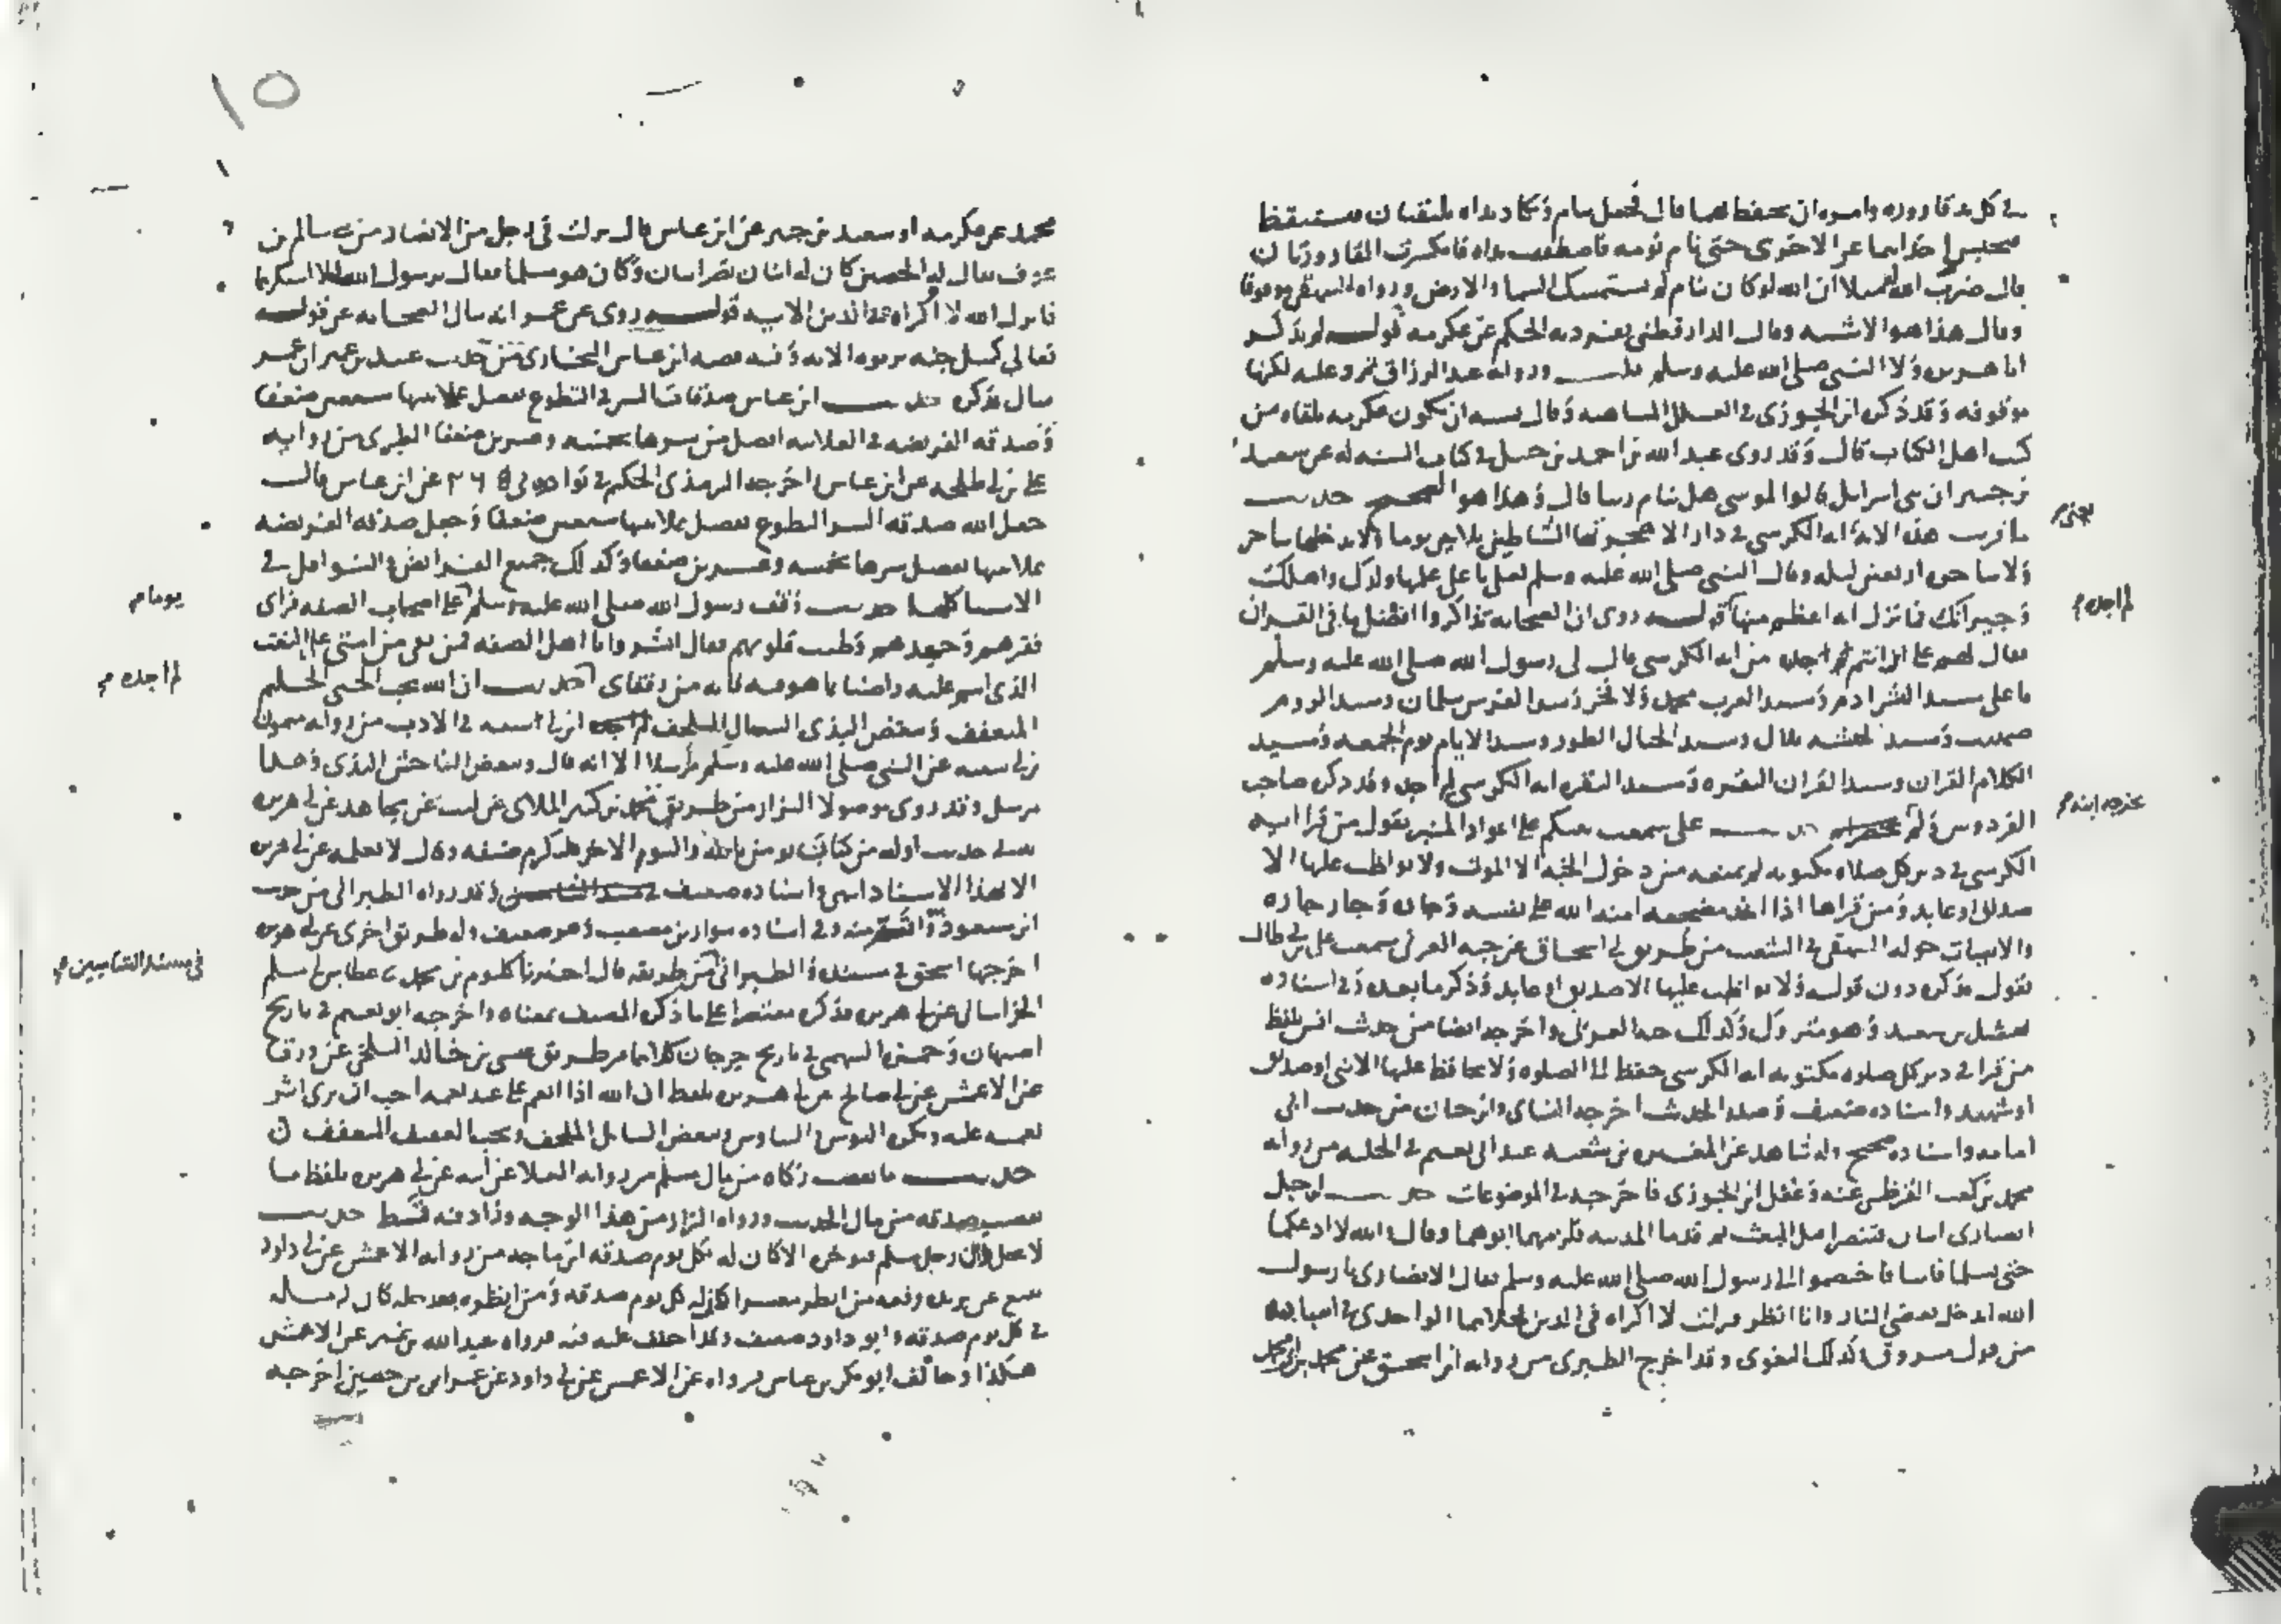 في كل يد قارورة وامره ان يحفظهما قال فجعل ينام وتكاد يداه تلتقيان فيستيقظ
فيحبس احداهما عن الاخرى حتى نام نومة فاصطفقت يداه فانكسرت القارورتان
قال ضرب الله مثلا ان الله لو كان ينام لم تستمسك السما والارض ورواه البيهقي موقوفا
وقال هذا هو الاشبه وقال الدارقطني تفرد به الحكم عن عكرمة قوله لم يذكر
ابا هريرة ولا النبي صلى الله عليه وسلم قلت ورواه عبد الرزاق عليه لكنها
موقوفة وقد ذكره ابن الجوزي في العلل المتناهية وقال يشبه ان يكون عكرمة تلقاه من
كتب اهل الكتاب قال وقد روى عبد الله بن احمد بن حنبل في كتاب السنة له عن سعيد
بن جبير ان بني اسرائيل قالوا لموسى هل ينام ربنا قال وهذا هو الصحيح حديث
ما قريت هذه الاية اية الكرسي في دار الا هجرتها الشياطين ثلاثين يوما ولا يدخلها ساحر
ولا ساحرة اربعين ليلة وقال النبي صلى الله عليه وسلم لعلي يا علي علمها ولدك واهلك
وجيرانك فما نزل اية اعظم منها قوله روى ان الصحابة تذاكروا افضل ما في القران
فقال لهم علي اين انتم من اية الكرسي قال لي رسول الله صلى الله عليه وسلم
يا علي سيد البشر ادم وسيد العرب محمد ولا فخر وسيد الفرس سلمان وسيد الروم
صهيب وسيد الحبشة بلال وسيد الجبال الطور وسيد الايام يوم الجمعة وسيد
الكلام القران وسيد القران البقرة وسيد البقرة اية الكرسي لم اجده وقد ذكره صاحب
الفردوس ولم حديث علي سمعت نبيكم على اعواد المنبر يقول من قرا اية
الكرسي في دبر كل صلاة مكتوبة لم يمنعه من دخول الجنة الا الموت ولا يواظب عليها الا
صديق او عابد ومن قراها اذا اخذ مضجعه امنه الله على نفسه وجاره وجار جاره
والابيات حوله البيهقي في الشعب من طريق ابي اسحاق عن حبة العرني سمعت علي بن ابي طالب
يقول فذكره دون قوله ولا يواظب عليها الا صديق او عابد وذكر ما بعده وفي اسناده
نهشل بن سعيد وهو متروك وكذلك حبة العرني واخرجه ايضا من حديث انس بلفظ
من قرا في دبر كل صلوة مكتوبة اية الكرسي حفظ الى الصلوة ولا يحافظ عليها الا نبي او صديق
او شهيد واسناده ضعيف وصدر الحديث اخرجه النساي وابن حبان من حديث ابي
امامة واسناده صحيح وله شاهد عن المغيرة بن شعبة عند ابي نعيم في الحلية من رواية
محمد بن كعب القرظي عنه وغفل ابن الجوزي فاخرجه في الموضوعات حديث ان رجل
انصاري ابنان فتنصرا قبل المبعث ثم قدما المدينة فلزمهما ابوهما وقال والله لا ادعكما
حتى تسلما فابيا فاختصموا الى رسول الله صلى الله عليه وسلم فقال الانصاري يا رسول
الله ايدخل بعضي النار وانا انظر فنزلت لا اكراه في الدين فخلاهما الواحدي في اسبابه
من قول مسروق وكذلك البغوي وقد اخرج الطبري من رواية ابن اسحق عن محمد بن ابي محمد
يجتني
لم اجده
يخرجه ابنه
١٥
محمد عن عكرمة او سعيد بن جبير عن ابن عباس قال نزلت في رجل من الانصار من بني سالم بن
عوف يقال له الحصين كان له ابنان نصرانيان وكان هو مسلما فقال يا رسول الله الا استكرههما
فانزل الله لا اكراه في الدين الاية قوله روى عن عمر انه سال الصحابة عن قوله
تعالى كمثل جنة بربوة الاية وفيه قصة ابن عباس البخاري من حديث عبيد بن عمير ان عمر
سال فذكره حديث ابن عباس صدقات السر في التطوع تفضل علانيتها سبعين ضعفا
وصدقة الفريضة في العلانية افضل من سرها بخمسة وعشرين ضعفا الطبري من رواية
علي بن ابي طلحة عن ابن عباس اخرجه الترمذي الحكيم في نوادره في عن ابن عباس قال
جعل الله صدقة السر في التطوع تفضل علانيتها سبعين ضعفا وجعل صدقة الفريضة
علانيتها تفضل سرها بخمسة وعشرين ضعفا وكذلك جميع الفرايض والنوافل في
الاشيا كلها حديث وقف رسول الله صلى الله عليه وسلم على اصحاب الصفة فراى
فقرهم وجهدهم وطيب قلوبهم فقال ابشروا يا اهل الصفة فمن بقي من امتي على النعت
الذي انتم عليه راضيا بما هو فيه فانه من رفقاي حديث ان الله يحب الحيي الحليم
المتعفف ويبغض البذي السال الملحف ابن ابي شيبة في الادب من رواية ميمون
بن ابي شبيب عن النبي صلى الله عليه وسلم مرسلا الا انه قال ويبغض الفاحش البذي وهذا
مرسل وقد روى موصولا البزار من طريق محمد بن كثير الملاي عن ليث عن مجاهد عن ابي هريرة
في حديث اوله من كان يومن بالله واليوم الاخر فليكرم ضيفه وقال لا نعلمه عن ابي هريرة
الا بهذا الاسناد انتهى واسناده ضعيف وقد رواه الطبراني من حديث
ابن مسعود منه وفي اسناده سوار بن مصعب وهو ضعيف وله طريق اخرى عن ابي هريرة
اخرجها اسحق في مسنده والطبراني من طريقه قال اخبرنا كلثوم بن محمد ثنا عطا بن ابي مسلم
الخراساني عن ابي هريرة فذكره مقتصرا على ما ذكره المصنف بمعناه واخرجه ابو نعيم في تاريخ
اصبهان وحمزة السهمي في تاريخ جرجان كلاهما من طريق عيسى بن خالد البلخي عن ورقا
عن الاعمش عن ابي صالح عن ابي هريرة بلفظ ان الله اذا انعم على عبد نعمة احب ان يرى اثر
نعمته عليه ويكره البوس والتباوس ويبغض السايل الملحف ويحب العفيف المتعفف
حديث ما نقصت زكاة من مال مسلم من رواية العلا عن ابيه عن ابي هريرة بلفظ ما
نقصت صدقة من مال الحديث ورواه البزار من هذا الوجه وزاد فيه قط حديث
لا يحل دين رجل مسلم فيوخره الا كان له بكل يوم صدقة ابن ماجه من رواية الاعمش عن ابي داود
نفيع عن بريدة رفعه من انظر معسرا كان له كل يوم صدقة ومن انظره بعد حله كان له مثله
في كل يوم صدقة وابو داود ضعيف وقد اختلف عليه فيه فرواه عبد الله بن نمير عن الاعمش
هكذا وخالف ابو بكر بن عياش فرواه عن الاعمش عن ابي داود عن عمران بن حصين اخرجه
يوما
لم اجده
في مسند الشاميين